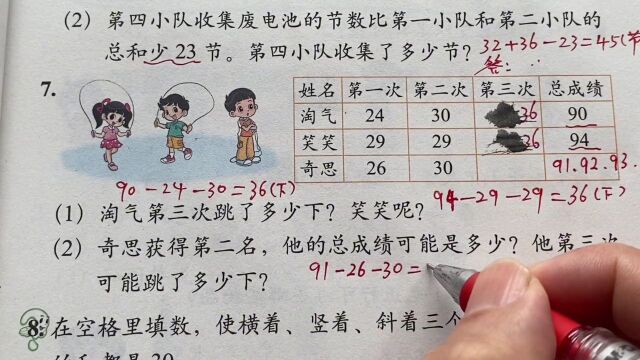 (2) 第四小队收集废电池的节数比第一小队和第二小队的
总和少 23 节。第四小队收集了多少节? 32+36-23=45(节
答:
7.
姓名 第一次 第二次 第三次 总成绩
淘气 24 30 36 90
笑笑 29 29 36 94
奇思 26 30 91.92.93.
90-24-30=36(下) 94-29-29=36(下)
(1) 淘气第三次跳了多少下? 笑笑呢?
(2) 奇思获得第二名, 他的总成绩可能是多少? 他第三次
可能跳了多少下? 91-26-30=
8. 在空格里填数, 使横着、竖着、斜着三个